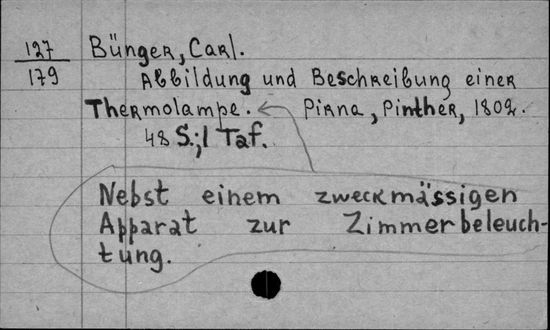 127
179
Bünger, Carl.
Abbildung und Beschreibung einer
Thermolampe. Pirna, Pinther, 1802.
48 S.; 1 Taf.
Nebst einem zweckmässigen
Apparat zur Zimmerbeleuch-
tung.